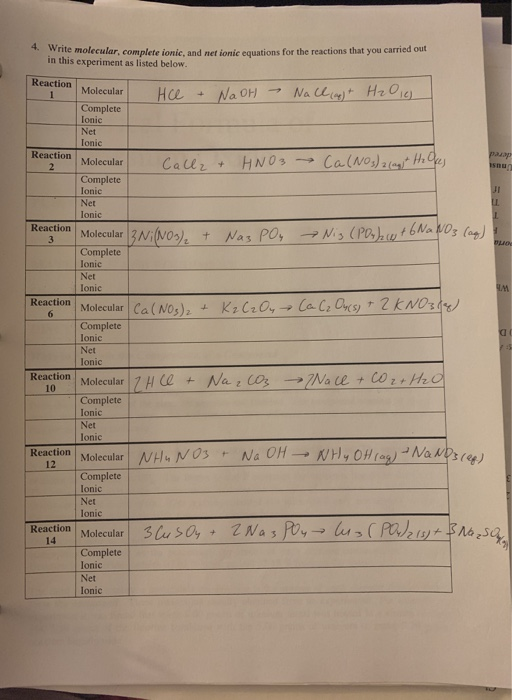 4. Write molecular, complete ionic, and net ionic equations for the reactions that you carried out
in this experiment as listed below.
Reaction 1 Molecular HCl + NaOH → NaCl(aq) + H2O(l)
Complete Ionic
Net Ionic
Reaction 2 Molecular CaCl2 + HNO3 → Ca(NO3)2(aq) +
Complete Ionic
Net Ionic
Reaction 3 Molecular 3Ni(NO3)2 + Na3PO4 → Ni3(PO4)2(s) + 6NaNO3(aq)
Complete Ionic
Net Ionic
Reaction 6 Molecular Ca(NO3)2 + K2C2O4 → CaC2O4(s) + 2KNO3(aq)
Complete Ionic
Net Ionic
Reaction 10 Molecular 2HCl + Na2CO3 → 2NaCl + CO2 + H2O
Complete Ionic
Net Ionic
Reaction 12 Molecular NH4NO3 + NaOH → NH4OH(aq) + NaNO3(aq)
Complete Ionic
Net Ionic
Reaction 14 Molecular 3CuSO4 + 2Na3PO4 → Cu3(PO4)2(s) + 3Na2SO4
Complete Ionic
Net Ionic